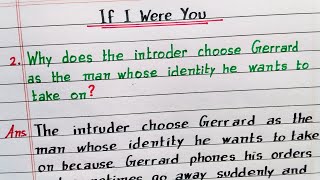 If I Were You
2. Why does the introder choose Gerrard
as the man whose identity he wants to
take on?
Ans The intruder choose Gerrard as the
man whose identity he wants to take
on because Gerrard phones his orders
sometimes go away suddenly and